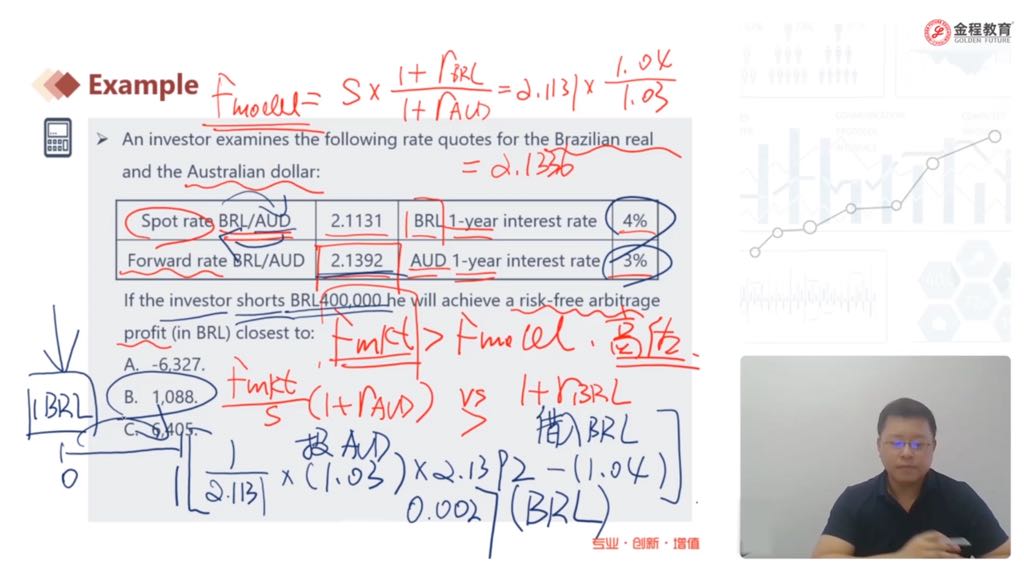 金程教育
GOLDEN FUTURE
Example
Fmodel = S × 1+rBRL / 1+rAUD = 2.1131 × 1.04 / 1.03
= 2.1336
➤ An investor examines the following rate quotes for the Brazilian real
and the Australian dollar:
Spot rate BRL/AUD 2.1131 BRL 1-year interest rate 4%
Forward rate BRL/AUD 2.1392 AUD 1-year interest rate 3%
If the investor shorts BRL400,000 he will achieve a risk-free arbitrage
profit (in BRL) closest to:
Fmkt > Fmodel. 高估.
A. -6,327.
B. 1,088.
C. 6,405.
Fmkt / S (1+rAUD) vs 1+rBRL
>
1BRL
0
投AUD 借入BRL
1[ 1 / 2.1131 × (1.03) × 2.1392 - (1.04) ]
0.0027 (BRL)
专业·创新·增值